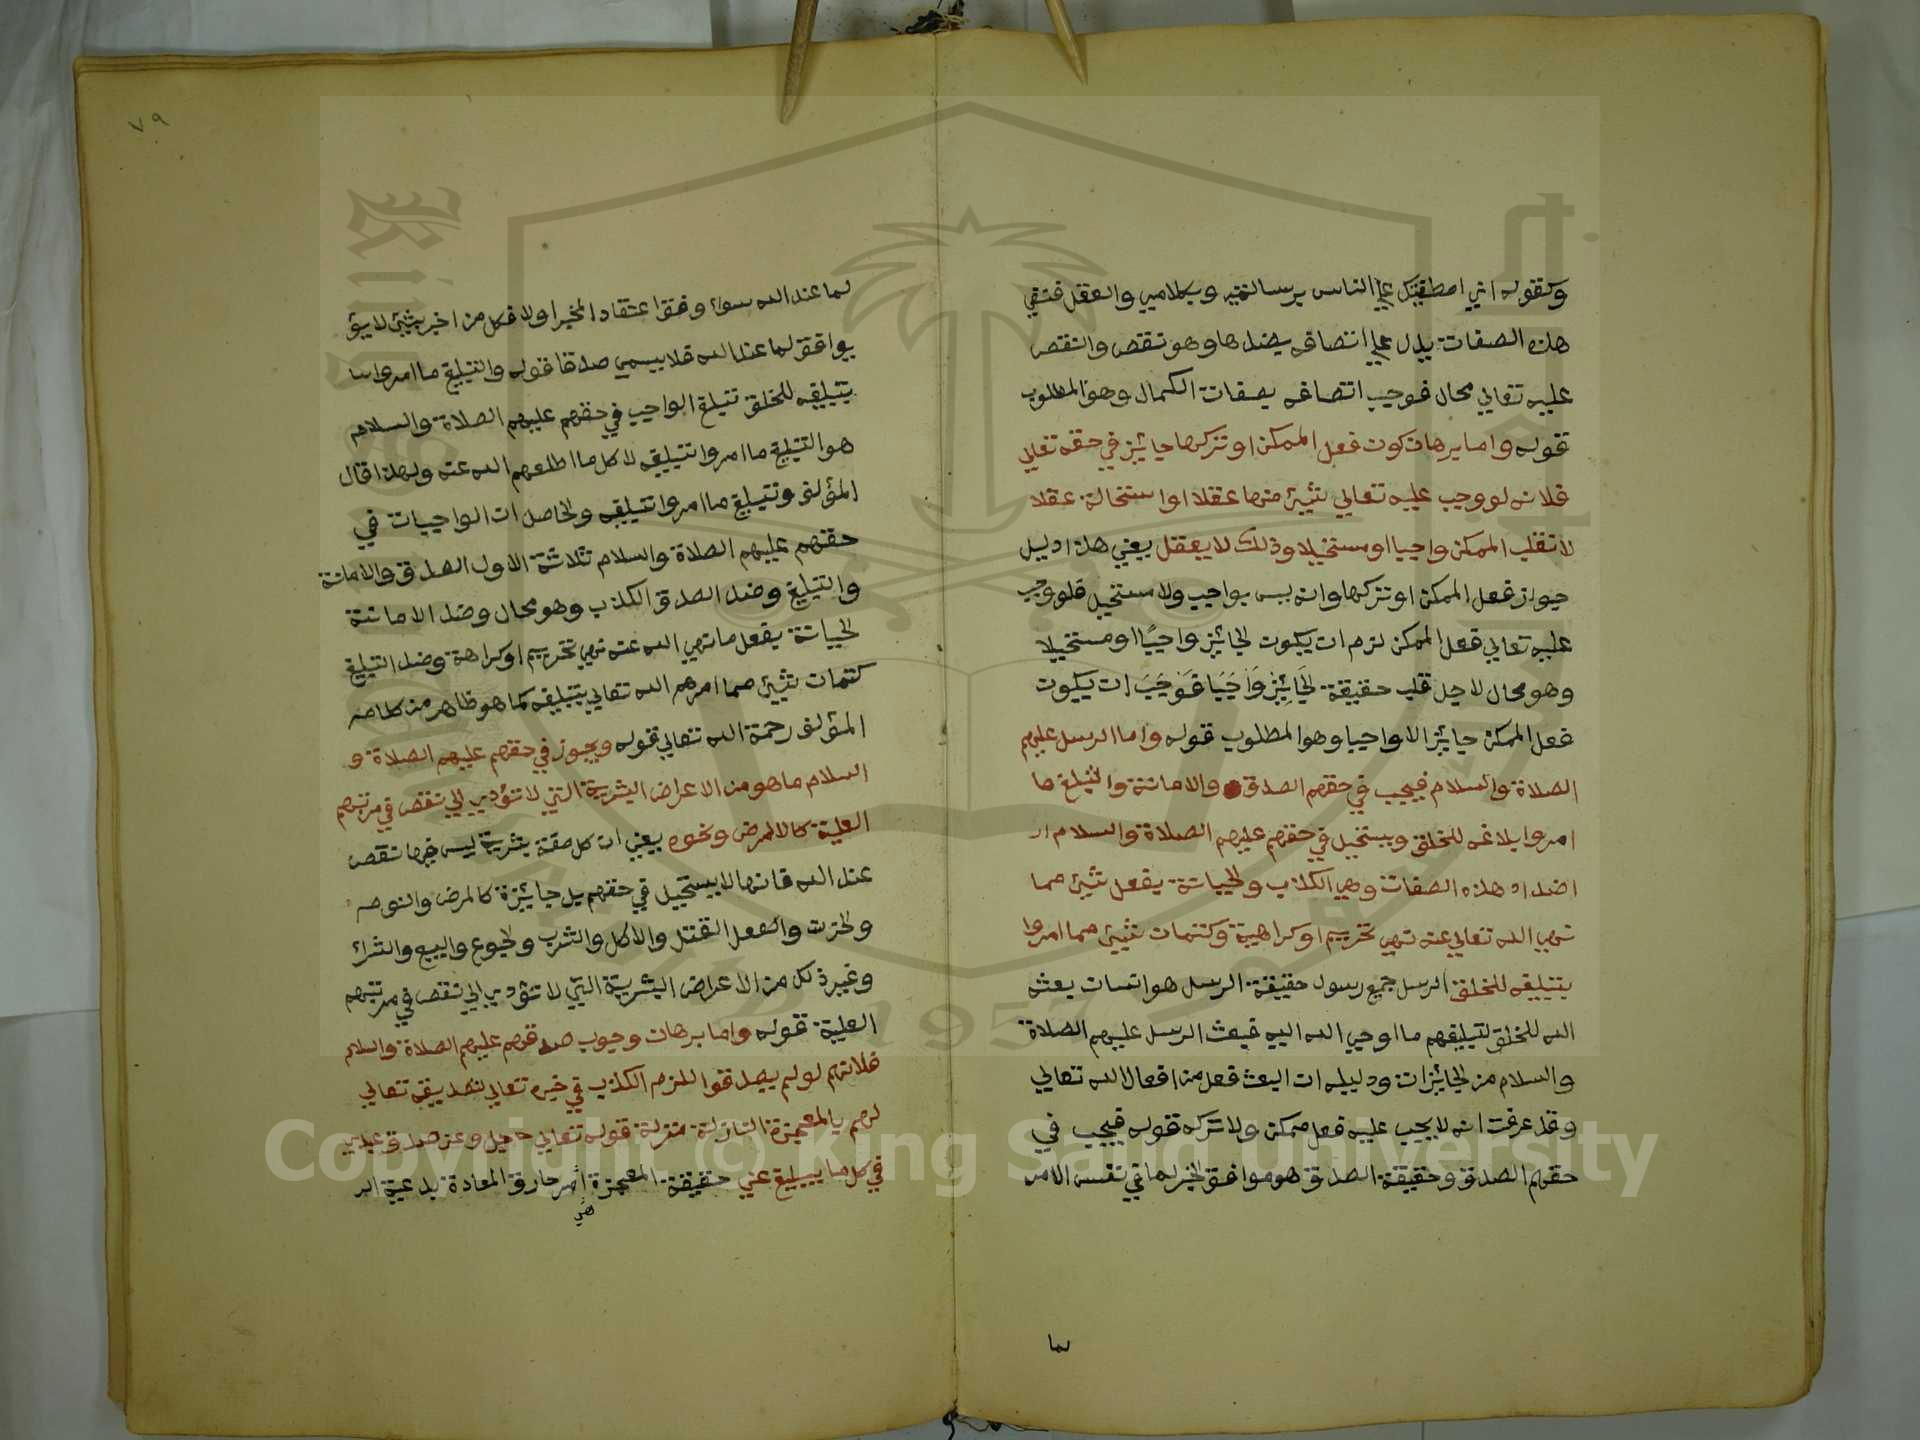 وكقوله اني اصطفيتك علي الناس برسالتي وبكلامي والعقل فنفي
هذه الصفات يدل علي اتصافه بضدها وهو نقص والنقص
عليه تعالي محال فوجب اتصافه بصفات الكمال وهو المطلوب
قوله واما برهان كون فعل الممكن او تركها جائز في حقه تعالي
فلانه لو وجب عليه تعالي شيئ منها عقلا او استحالة عقلا
لا نقلب الممكن واجبا او مستحيلا وذلك لا يعقل يعني هذا دليل
جواز فعل الممكن او تركها وانه ليس بواجب ولا مستحيل فلو وجب
عليه تعالي فعل الممكن لزم ان يكون الجائز واجبًا او مستحيلا
وهو محال لاجل قلب حقيقة الجائز واجبا فوجب ان يكون
فعل الممكن جائز الا واجبا وهو المطلوب قوله واما الرسل عليهم
الصلاة والسلام فيجب في حقهم الصدق والامانة والتبلغ ما
امروا بلاغه للخلق ويستحيل في حقهم عليهم الصلاة والسلام
اضداد هذه الصفات وهي الكذب والخيانة بفعل شيئ مما
نهي الله تعالي عنه نهي تحريم او كراهية وكتمان شيئ مما امروا
بتبليغه للخلق الرسل جميع رسول حقيقة الرسل هو انسان بعثه
الله للخلق لتبليغهم ما اوحي الله اليه فبعث الرسل عليهم الصلاة
والسلام من الجائزات ودليله ان البعث فعل من افعال الله تعالي
وقد عرفت انه لا يجب عليه فعل ممكن ولا تركه قوله فيجب في
حقهم الصدق وحقيقة الصدق هو موافق الخبر لما في نفس الامر
لما
٧٩
لما عند الله سواء وفقرا عتقاد المخبر اولا فكل من اخبر بشئ لا يؤ
يوافقه لما عند الله فلا يسمي صدقا قوله والتبليغ ما امروا
بتبليغه للخلق تبلغ الواجب في حقهم عليهم الصلاة والسلام
هو التبليغ ما امروا بتبليغه لا كل ما اطلعهم الله عنه ولهذا قال
المؤلف وتبليغ ما امروا بتبليغه والحاصل ان الواجبات في
حقهم عليهم الصلاة والسلام ثلاثة الاول الصدق والامانة
والتبليغ وضد الصدق الكذب وهو محال وضد الامانة
الخيانة بفعل ما نهي الله عنه نهي تحريم او كراهة وضد التبليغ
كتمان شيئ مما امرهم الله تعالي بتبليغه كما هو ظاهر من كلامه
المؤلف رحمة الله تعالي قوله ويجوز في حقهم عليهم الصلاة و
السلام ما هو من الاعراض البشرية التي لا تؤدي الي نقص في مرتبتهم
العلية كالامرض ونحوه يعني ان كل صفة بشرية ليس فيها نقص
عند الله فانها لا يستحيل في حقهم بل جائزة كالمرض والنوم
والحزن والفعل القتل والاكل والشرب والجوع والبيع والشراء
وغير ذلك من الاعراض البشرية التي لا تؤدي الي نقص في مرتبتهم
العلية قوله واما برهان وجوب صدقهم عليهم الصلاة والسلام
فلانهم لو لم يصدقوا للزم الكذب في خبره تعالي لتصديقه تعالي
لهم بالمعجزة النازلة منزلة قوله تعالي جل وعز صدق عبدي
في كل ما يبلغ عني حقيقة المعجزة أمر خارق العادة
هي
Copyright © King Saud University
1957